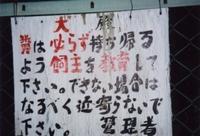 犬
はふ必らず持ち帰る
よう飼主を教育して
下さい。できない場合は
なるべく近寄らないで
下さい。 管理者